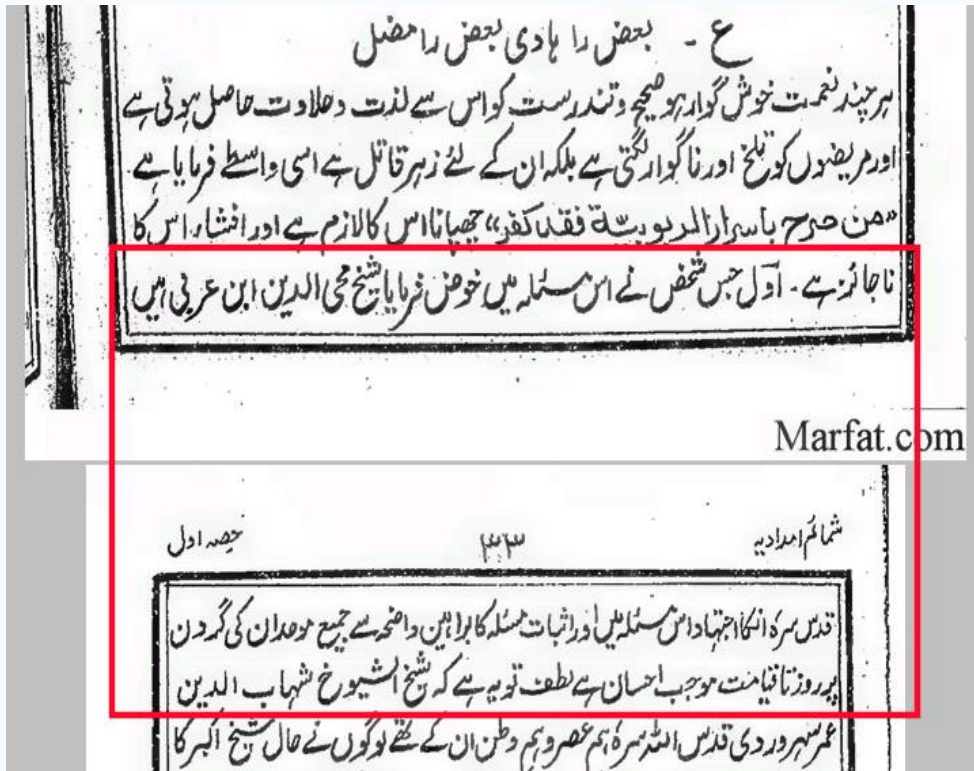 ع - بعض را ہادی بعض را مضل
ہر چند نعمت خوش گوار ہو صحیح و تندرست کو اس سے لذت و حلاوت حاصل ہوتی ہے
اور مریضوں کو تلخ اور ناگوار لگتی ہے بلکہ ان کے لئے زہر قاتل ہے اسی واسطے فرمایا ہے۔
"من صرح باسرار الربوبیۃ فقد کفر" چھپانا اس کا لازم ہے اور افشاء اس کا
ناجائز ہے۔ اول جس شخص نے اس مسئلہ میں خوض فرمایا شیخ محی الدین ابن عربی ہیں
Marfat.com
شمائم امدادیہ
۳۳
حصہ اول
قدس سرہ انکا اجتہاد اس مسئلہ میں اور اثبات مسئلہ کا براہین واضحہ سے جمیع موحدان کی گردن
پر روز تا قیامت موجب احسان ہے لطف تو یہ ہے کہ شیخ الشیوخ شہاب الدین
عمر سہروردی قدس اللہ سرہ ہم عصر و ہم وطن ان کے تھے لوگوں نے حال شیخ اکبر کا